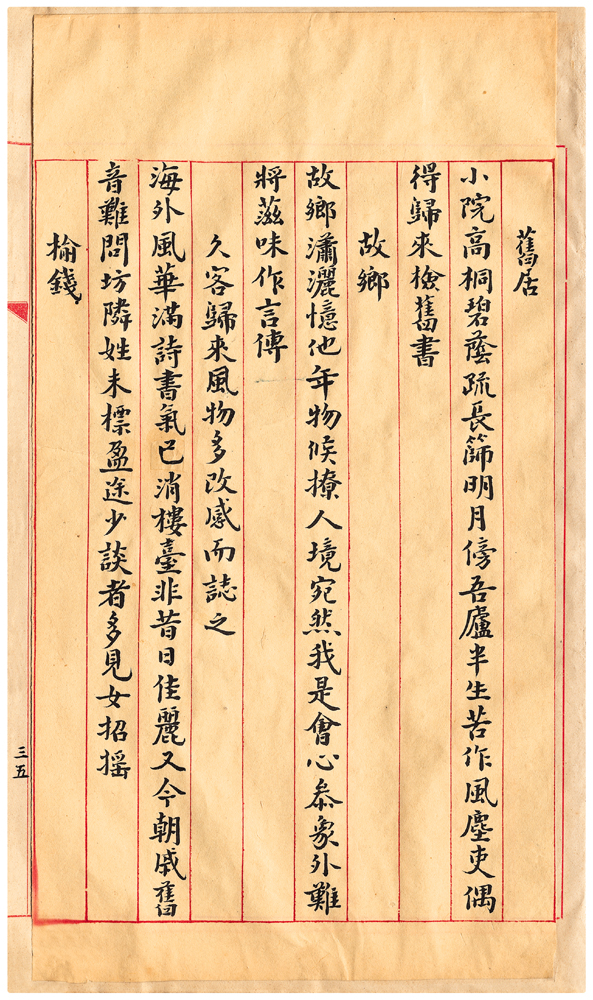 舊居
小院高桐碧蔭疏長篩明月傍吾廬半生苦作風塵吏偶
得歸來檢舊書
故鄉
故鄉瀟灑憶他年物候撩人境宛然我是會心叅象外難
將滋味作言傳
久客歸來風物多改感而誌之
海外風華滿詩書氣已消樓臺非昔日佳麗又今朝戚舊
音難問坊隣姓未標盈途少談者多見女招搖
榆錢
三五